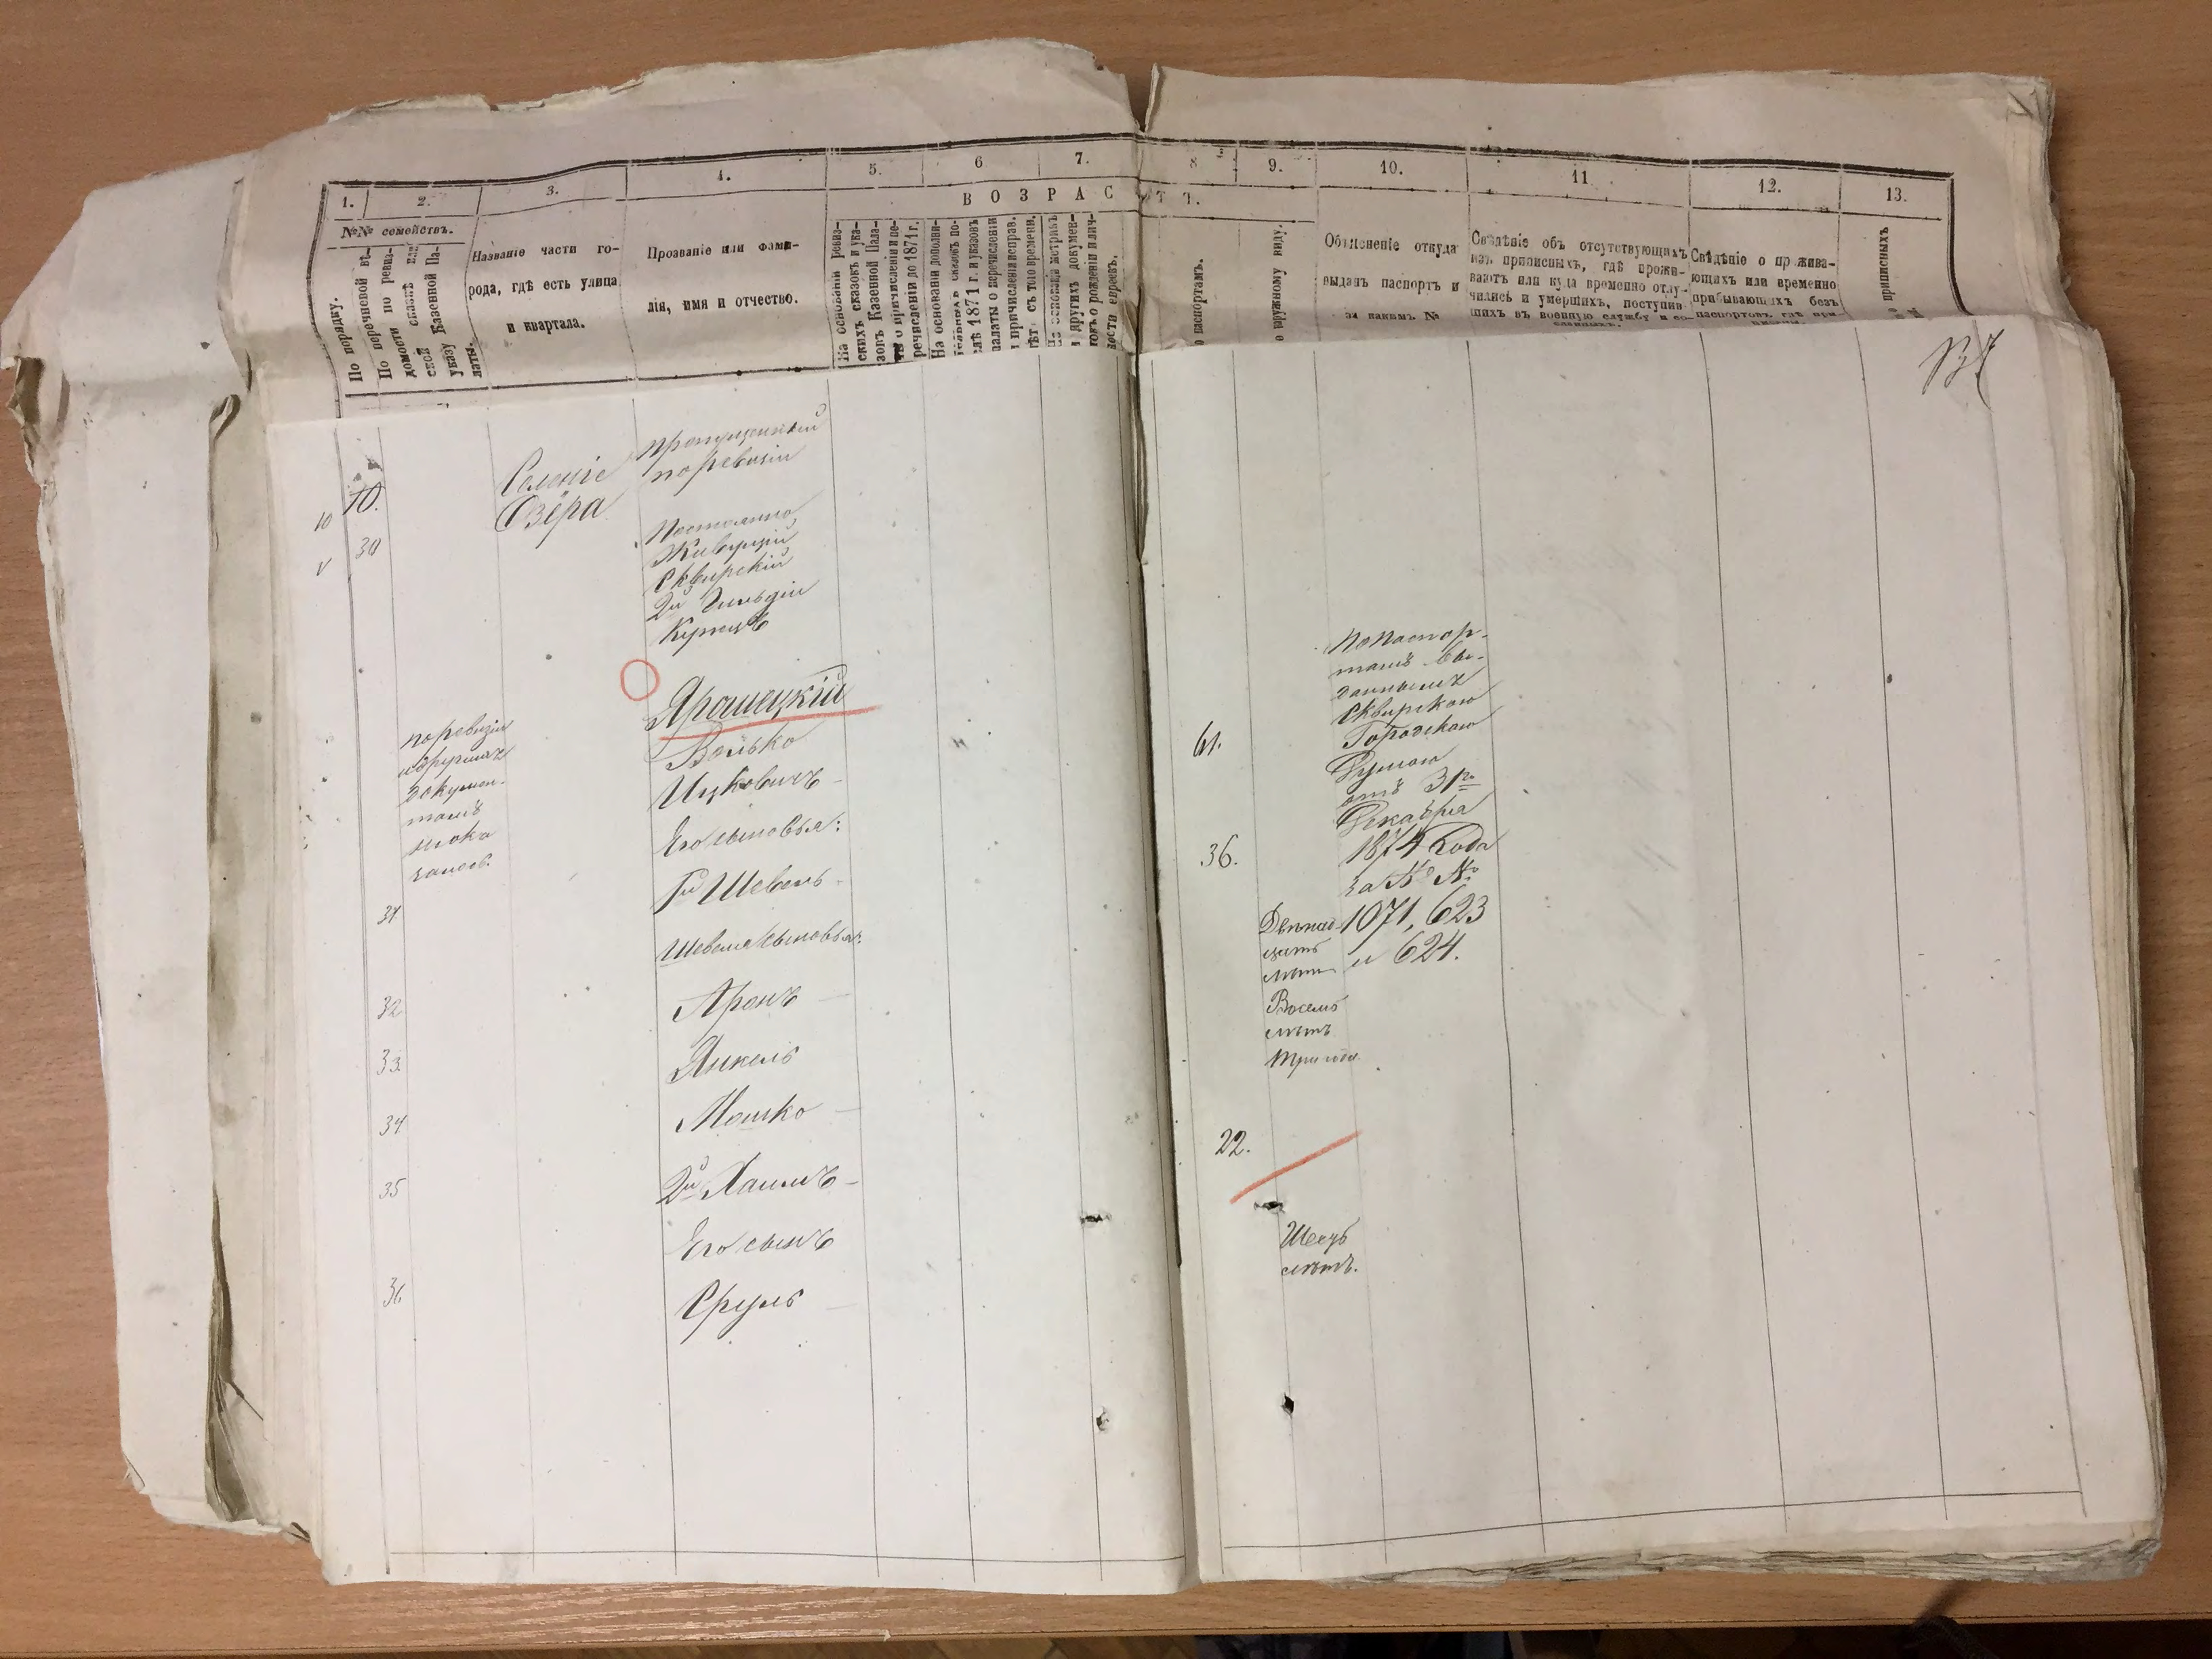 1. 2. 3. 4. 5. 6 7. 8 9. 10. 11 12. 13.
В О З Р А С Т Ъ.
№№ семействъ.
По порядку.
По перечневой вѣ-
домости по ревиз-
ской сказкѣ или
указу Казенной Па-
латы.
Названіе части го-
рода, гдѣ есть улица
и квартала.
Прозваніе или фами-
лія, имя и отчество.
На основаніи ревиз-
скихъ сказокъ и ука-
зовъ Казенной Пала-
ты о причисленіи и пе-
речисленіи до 1871 г.
На основаніи дополни-
тельныхъ сказокъ по-
слѣ 1871 г. и указовъ
палаты о перечисленіи
и причисленіи исправ.
лѣтъ съ того времени.
На основаніи метрикъ
и другихъ докумен-
товъ о рожденіи и лич-
ности евреевъ.
о паспортамъ.
о наружному виду.
Объясненіе откуда
выданъ паспортъ и
за какимъ №
Свѣдѣніе объ отсутствующихъ
изъ приписныхъ, гдѣ прожи-
ваютъ или куда временно отлу-
чились и умершихъ, поступив-
шихъ въ военную службу и со-
сланныхъ.
Свѣдѣніе о прожива-
ющихъ или временно
прибывающихъ безъ
паспортовъ, гдѣ при
приписныхъ
137
10 10.
v 30
Селеніе
Озера
пропущенный
по ревизіи
Постоянно
Живущій
Сквирскій
2й Гильдіи
Купецъ
по ревизіи
и другимъ
докумен-
тамъ
не пока
занъ.
Ярошецкій
Волько
Ицковичъ
61.
Его сыновья:
1й Шевель
36.
31
Шевеля сыновья:
Аронъ
Двѣнад-
цать
лѣтъ
32
Янкель
Восемь
лѣтъ
33
Мошко
Три года
34
2й Хаимъ
22.
35
Его сынъ
Сруль
Шесть
лѣтъ.
36
По паспор-
тамъ вы-
даннымъ
Сквирскою
Городскою
Думою
отъ 31го
Декабря
1874 Года
за №№
1071, 623
и 624.